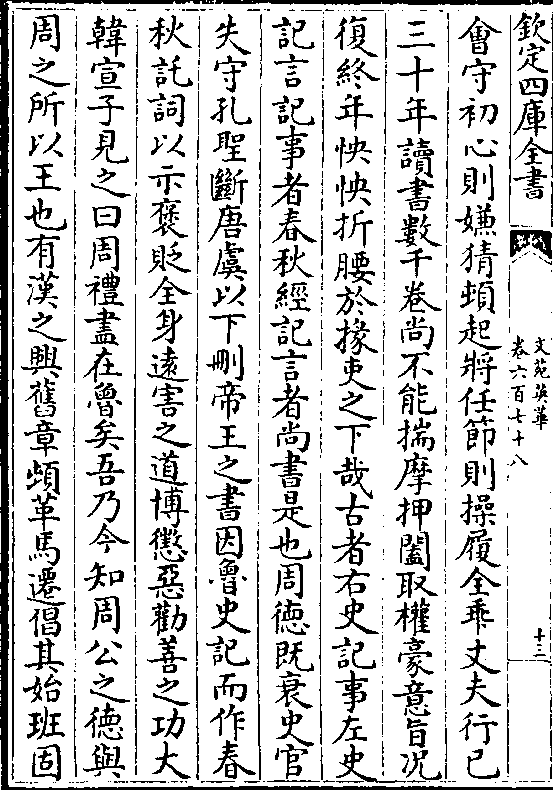 欽定四庫全書
文苑英華
卷六百七十八
十三
會守初心則嫌猜頓起將任節則操履全乖丈夫行已
三十年讀書數千卷尚不能揣摩押闔取權豪意旨况
復終年怏怏折腰於掾吏之下哉古者右史記事左史
記言記事者春秋經記言者尚書是也周德既衰史官
失守孔聖斷唐虞以下刪帝王之書因魯史記而作春
秋託詞以示褒貶全身遠害之道博懲惡勸善之功大
韓宣子見之曰周禮盡在魯矣吾乃今知周公之德與
周之所以王也有漢之興舊章頓革馬遷倡其始班固